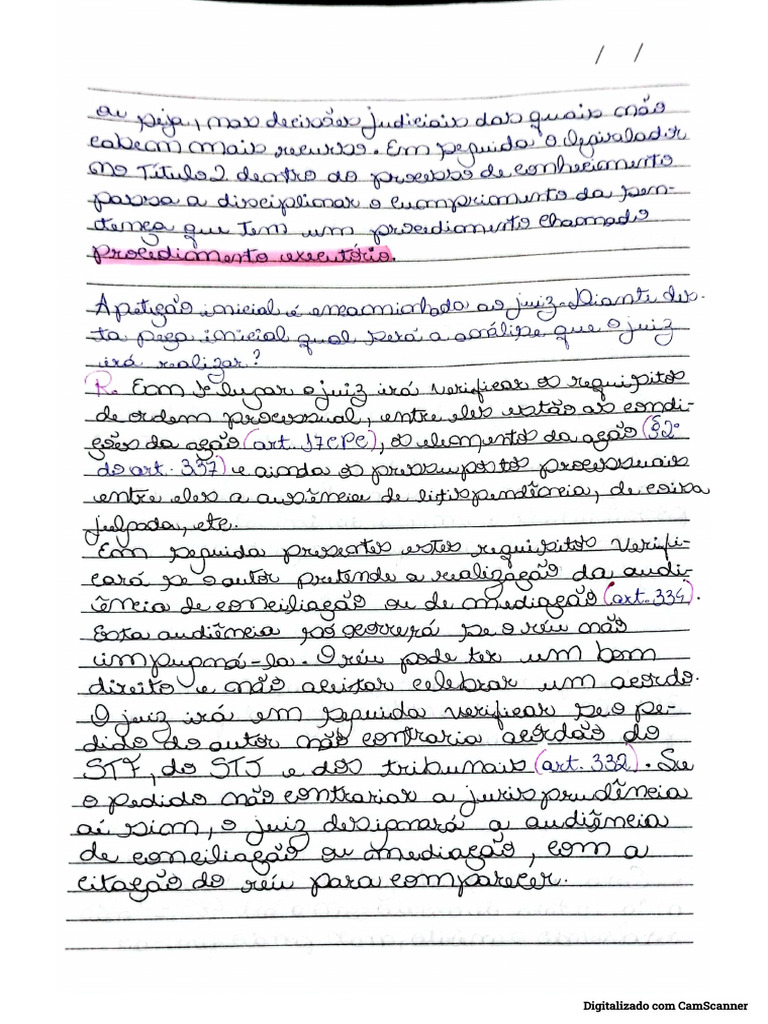 / /
ou seja, nas decisões judiciais das quais não
cabem mais recurso. Em seguida o legislador
no Título 2 dentro do processo de conhecimento
passa a disciplinar o cumprimento da sen-
tença que tem um procedimento chamado
procedimento executório.
A petição inicial é encaminhada ao juiz. Diante des-
ta peça inicial qual será a análise que o juiz
irá realizar?
R. Em 1º lugar o juiz irá verificar os requisitos
de ordem processual, entre eles estão as condi-
ções da ação (art. 17 CPC), os elementos da ação (§2º
do art. 337) e ainda os pressupostos processuais
entre eles a ausência de litispendência, de coisa
julgada, etc.
Em seguida presentes estes requisitos verifi-
cará se o autor pretende a realização da audi-
ência de conciliação ou de mediação (art. 334).
Esta audiência só ocorrerá se o réu não
impugná-la. O réu pode ter um bom
direito e não aceitar celebrar um acordo.
O juiz irá em seguida verificar se o pe-
dido do autor não contraria acordão do
STF, do STJ e dos tribunais (art. 332). Se
o pedido não contrariar a jurisprudência
aí sim, o juiz designará a audiência
de conciliação ou mediação, com a
citação do réu para comparecer.
Digitalizado com CamScanner